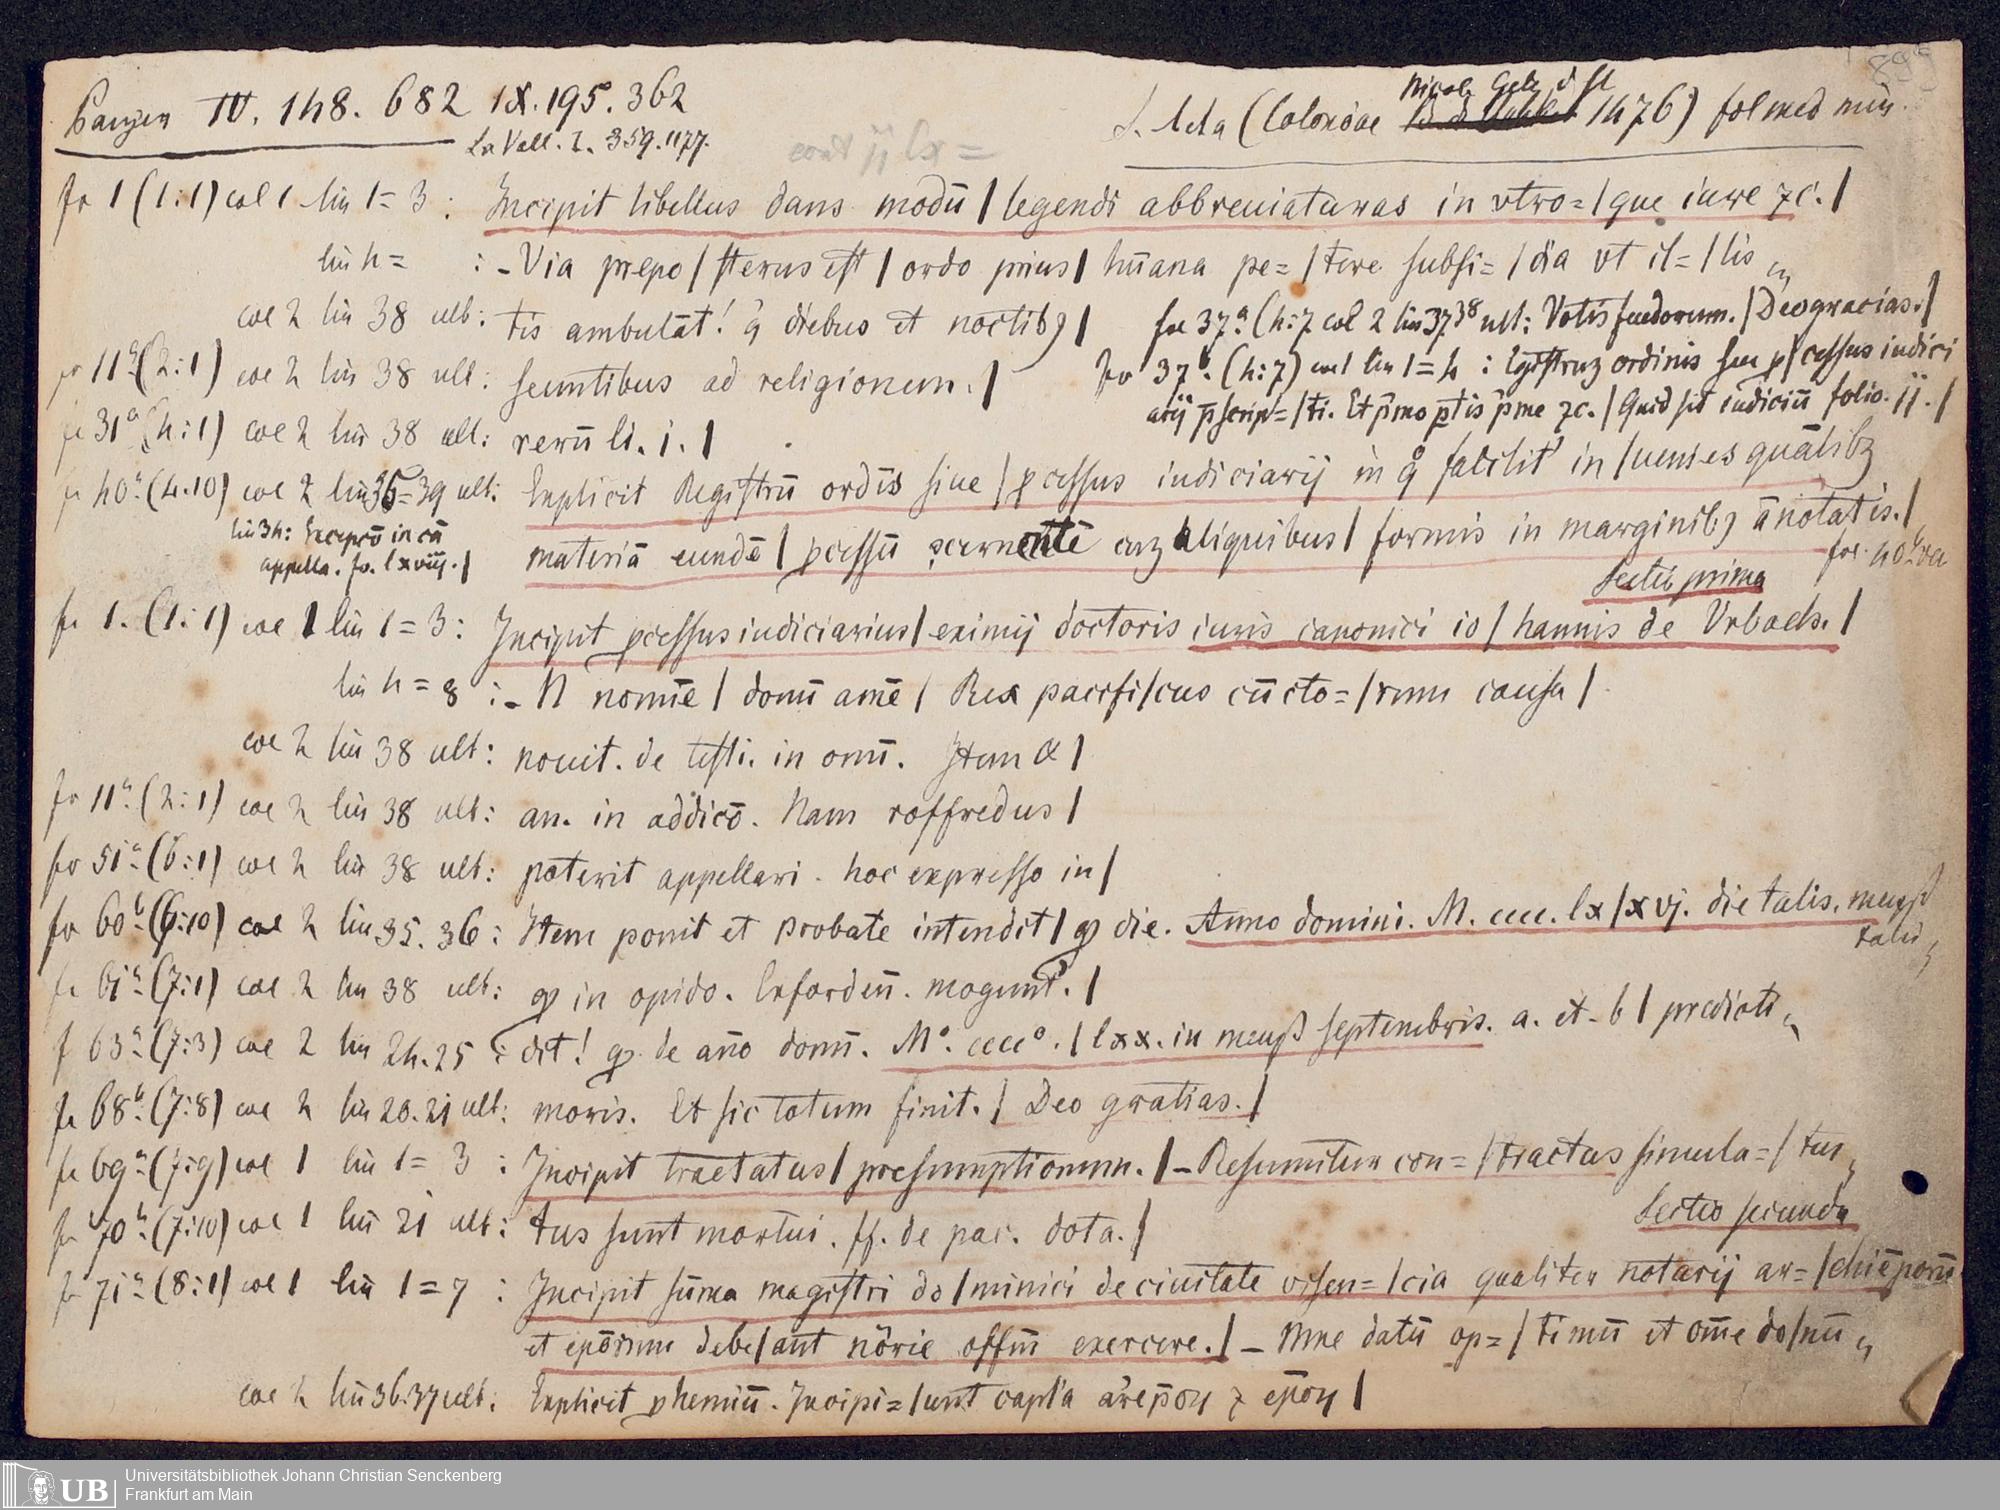 Panzer IV. 148. 682 IX. 195. 362
La Vall. I. 359. 1177.
S. l. et a (Coloniae Nicol. Götz d Sl 1476) fol med min.
fo 1 (1:1) col 1 lin 1=3 : Incipit libellus dans modū | legendi abbreuiaturas in vtro= | que iure ⁊c. |
lin 4= : - Via prepo | sterus est | ordo prius | hūana pe= | tere subsi= | dia vt il= | lis
col 2 lin 38 ult: tis ambulāt! q̄ diebus et noctibꝫ |
fol 37.a (4:7 col 2 lin 37 38 ult: Votis feudorum. | Deo gracias. |
fo 11a (2:1) col 2 lin 38 ult: seuntibus ad religionem. |
fo 37b. (4:7) col 1 lin 1=4 : Egistrum ordinis seu ꝓ | cessus iudici
arij p̄script= | ti. Et p̄mo ptis p̄me ⁊c. | Quid sit iudiciū folio. ij. |
fo 31a (4:1) col 2 lin 38 ult: rerū li. i. |
fo 40b (4:10) col 2 lin 35=39 ult: Explicit Registrū ordīs siue | ꝓcessus iudiciarij in q̊ facilit' in | uenies qualibꝫ
lin 34: Excepcō in cā
appella. fo. lxviij. |
materiā eundē | ꝓcessū cum aliquibus | formis in marginibꝫ ānotatis. |
fol. 40b va
Sectio prima
fo 1. (1:1) col 1 lin 1=3: Incipit ꝓcessus iudiciarius | eximij doctoris iuris canonici io | hannis de Vrbach. |
lin 4=8 : - N nomīe | domī amē | Rex pacifi | cus cūcto= | rum causa |
col 2 lin 38 ult: nouit. de testi. in omī. Item & |
fo 11a (2:1) col 2 lin 38 ult: an. in addicō. Nam roffredus |
fo 51a (6:1) col 2 lin 38 ult: poterit appellari. hoc expresso in |
fo 60b (6:10) col 2 lin 35. 36: Item ponit et probate intendit | ꝙ die. Anno domini. M. cccc. lx | xvj. die talis. mensis
talis
fo 61a (7:1) col 2 lin 38 ult: ꝙ in opido. Erforden̄. mogunt'. |
f 63a (7:3) col 2 lin 24. 25 : dit! ꝙ de año domī. M°. cccc°. | lxx. in mensß septembris. a. et. b | predicti
fo 68b (7:8) col 2 lin 20. 21 ult: moris. Et sic totum finit. | Deo gratias. |
fo 69a (7:9) col 1 lin 1=3 : Incipit tractatus | presumptionum. | - Resumitur con= | tractus simula= | tus
fo 70b (7:10) col 1 lin 21 ult: tus sunt mortui. ff. de pac. dota. |
Sectio secunda
fo 71a (8:1) col 1 lin 1=7 : Incipit sūma magistri do | minici de ciuitate visen= | cia qualiter notarij ar= | chiēporū
et epōrum debe | ant nōrie offm̄ exercere. | - Mne datū op= | timū et om̄e do | nū
col 2 lin 36. 37 ult: Explicit ꝓhemiū. Incipi= | unt capl'a arc̄epōꝝ ⁊ epōꝝ |
UB Universitätsbibliothek Johann Christian Senckenberg
Frankfurt am Main